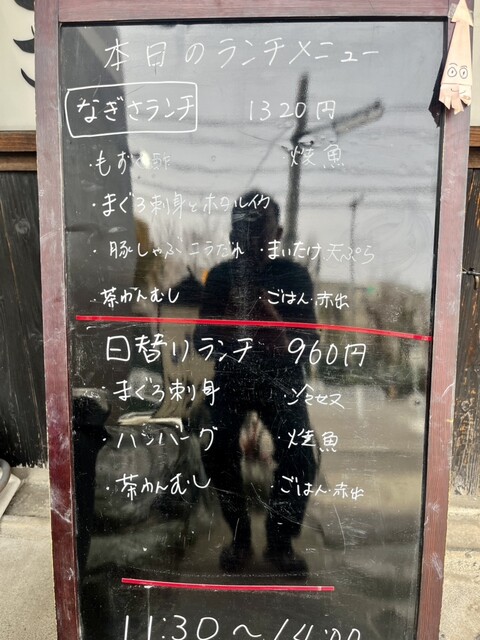 本日のランチメニュー
なぎさランチ 1320円
・もずく酢 ・焼魚
・まぐろ刺身とホタルイカ
・豚しゃぶ ニラだれ ・まいたけ天ぷら
・茶わんむし ・ごはん・赤出
日替りランチ 960円
・まぐろ刺身 ・冷奴
・ハンバーグ ・焼魚
・茶わんむし ・ごはん・赤出
11:30～14:00